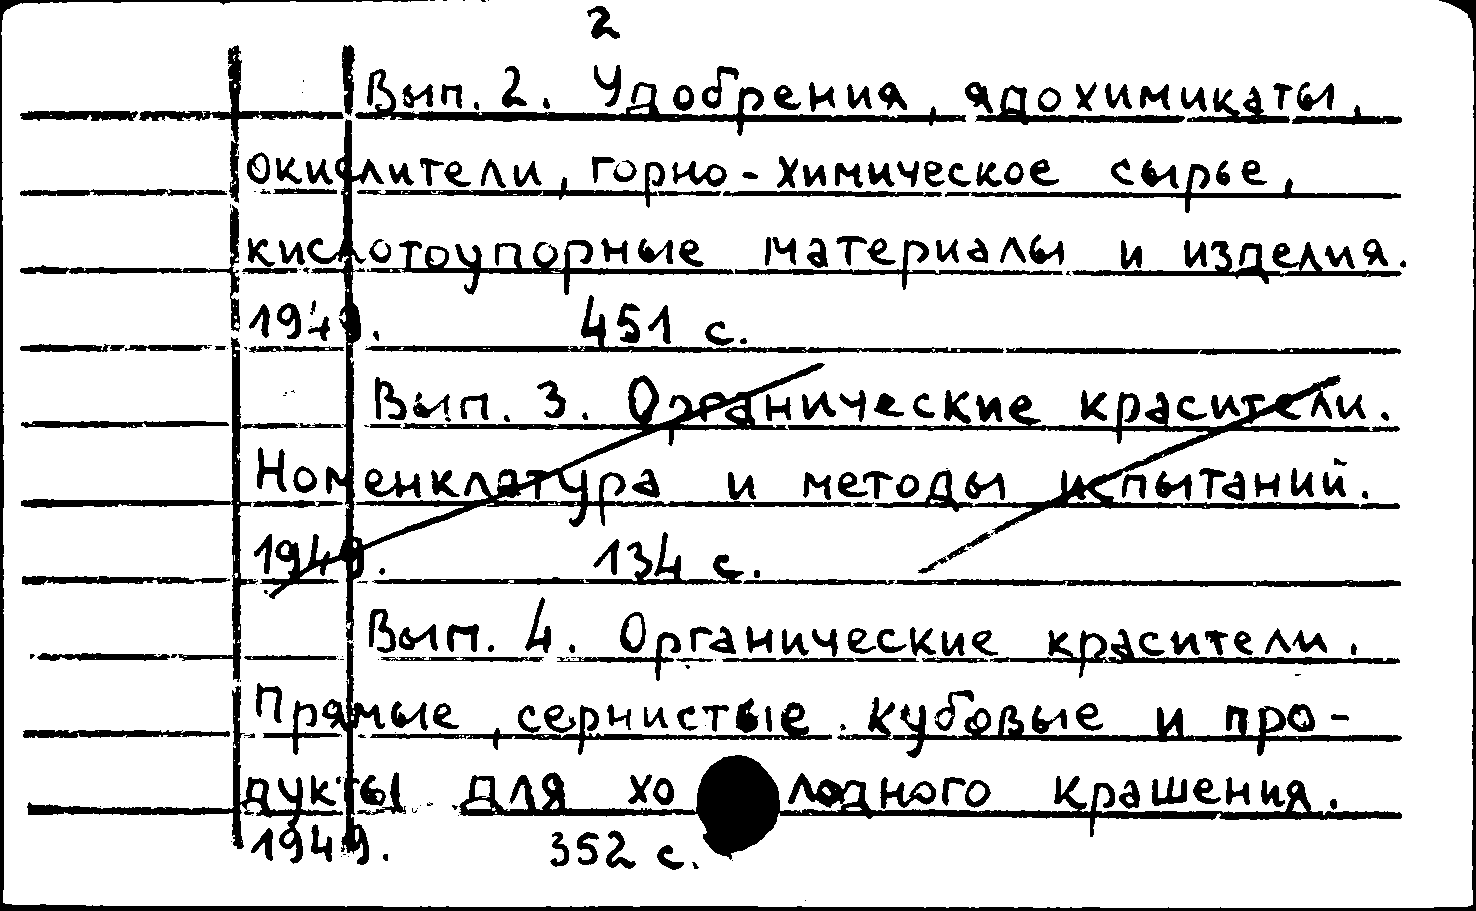 2
Вып. 2. Удобрения, ядохимикаты,
окислители, горно-химическое сырье,
кислотоупорные материалы и изделия.
1949. 451 с.
Вып. 3. Органические красители.
Номенклатура и методы испытаний.
1949. 134 с.
Вып. 4. Органические красители.
Прямые, сернистые. кубовые и про-
дукты для холодного крашения.
1949. 352 с.